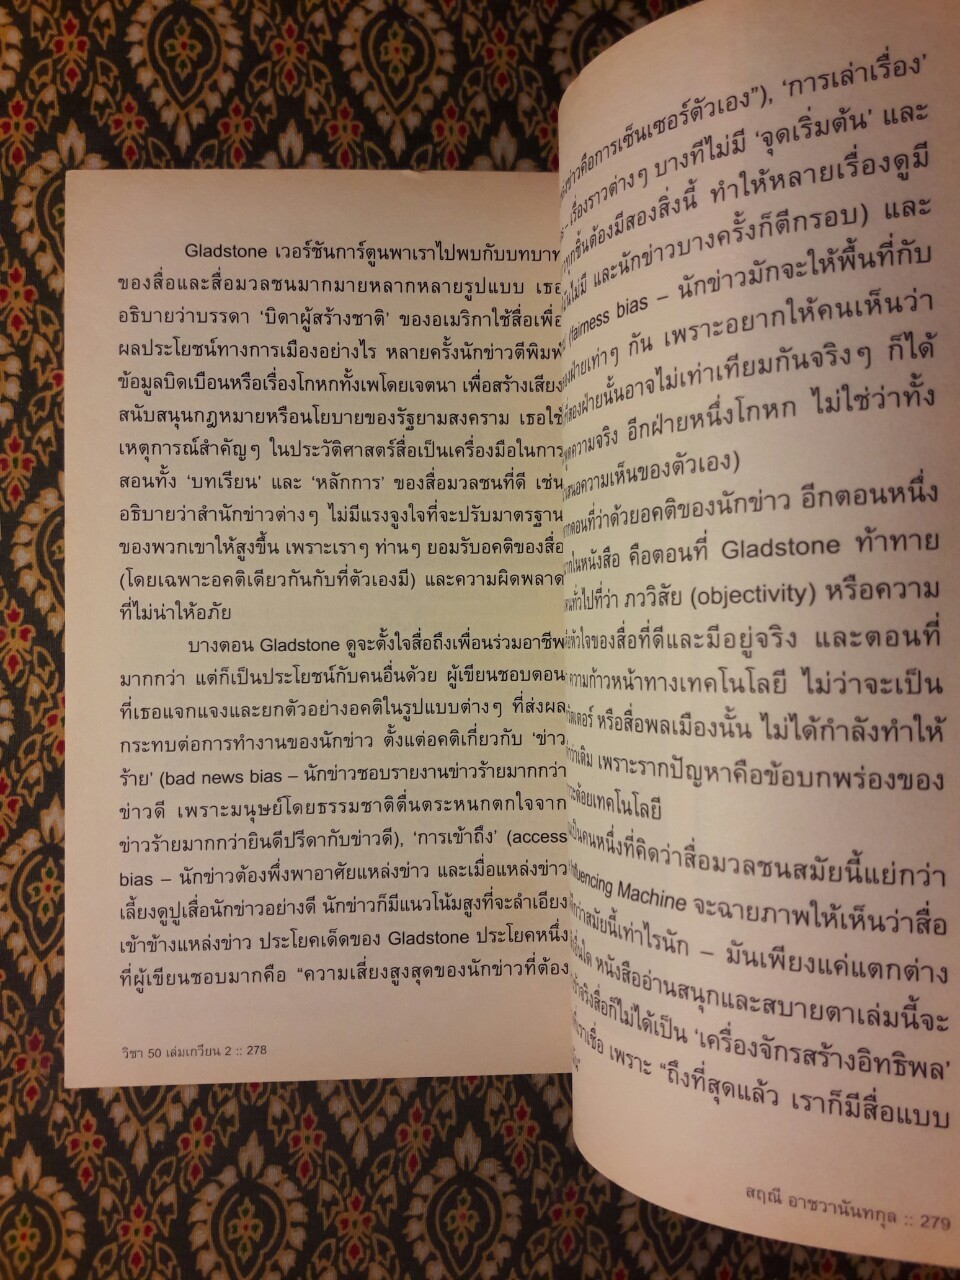 Gladstone เวอร์ชันการ์ตูนพาเราไปพบกับบทบาท
ของสื่อและสื่อมวลชนมากมายหลากหลายรูปแบบ เธอ
อธิบายว่าบรรดา ‘บิดาผู้สร้างชาติ’ ของอเมริกาใช้สื่อเพื่อ
ผลประโยชน์ทางการเมืองอย่างไร หลายครั้งนักข่าวตีพิมพ์
ข้อมูลบิดเบือนหรือเรื่องโกหกทั้งเพโดยเจตนา เพื่อสร้างเสียง
สนับสนุนกฎหมายหรือนโยบายของรัฐยามสงคราม เธอใช้
เหตุการณ์สำคัญๆ ในประวัติศาสตร์สื่อเป็นเครื่องมือในการ
สอนทั้ง ‘บทเรียน’ และ ‘หลักการ’ ของสื่อมวลชนที่ดี เช่น
อธิบายว่าสำนักข่าวต่างๆ ไม่มีแรงจูงใจที่จะปรับมาตรฐาน
ของพวกเขาให้สูงขึ้น เพราะเราๆ ท่านๆ ยอมรับอคติของสื่อ
(โดยเฉพาะอคติเดียวกันกับที่ตัวเองมี) และความผิดพลาด
ที่ไม่น่าให้อภัย
บางตอน Gladstone ดูจะตั้งใจสื่อถึงเพื่อนร่วมอาชีพ
มากกว่า แต่ก็เป็นประโยชน์กับคนอื่นด้วย ผู้เขียนชอบตอน
ที่เธอแจกแจงและยกตัวอย่างอคติในรูปแบบต่างๆ ที่ส่งผล
กระทบต่อการทำงานของนักข่าว ตั้งแต่อคติเกี่ยวกับ ‘ข่าว
ร้าย’ (bad news bias – นักข่าวชอบรายงานข่าวร้ายมากกว่า
ข่าวดี เพราะมนุษย์โดยธรรมชาติตื่นตระหนกตกใจจาก
ข่าวร้ายมากกว่ายินดีปรีดากับข่าวดี), ‘การเข้าถึง’ (access
bias – นักข่าวต้องพึ่งพาอาศัยแหล่งข่าว และเมื่อแหล่งข่าว
เลี้ยงดูปูเสื่อนักข่าวอย่างดี นักข่าวก็มีแนวโน้มสูงที่จะลำเอียง
เข้าข้างแหล่งข่าว ประโยคเด็ดของ Gladstone ประโยคหนึ่ง
ที่ผู้เขียนชอบมากคือ “ความเสี่ยงสูงสุดของนักข่าวที่ต้อง
วิชา 50 เล่มเกวียน 2 :: 278
ข่าวคือการเซ็นเซอร์ตัวเอง”), ‘การเล่าเรื่อง’
– เรื่องราวต่างๆ บางทีไม่มี ‘จุดเริ่มต้น’ และ
ทุกชิ้นต้องมีสองสิ่งนี้ ทำให้หลายเรื่องดูมี
ไม่มี และนักข่าวบางครั้งก็ตีกรอบ) และ
(fairness bias – นักข่าวมักจะให้พื้นที่กับ
ฝ่ายเท่าๆ กัน เพราะอยากให้คนเห็นว่า
ที่สองฝ่ายนั้นอาจไม่เท่าเทียมกันจริงๆ ก็ได้
ความจริง อีกฝ่ายหนึ่งโกหก ไม่ใช่ว่าทั้ง
ความเห็นของตัวเอง)
ตอนที่ว่าด้วยอคติของนักข่าว อีกตอนหนึ่ง
ในหนังสือ คือตอนที่ Gladstone ท้าทาย
ทั่วไปที่ว่า ภววิสัย (objectivity) หรือความ
หัวใจของสื่อที่ดีและมีอยู่จริง และตอนที่
ความก้าวหน้าทางเทคโนโลยี ไม่ว่าจะเป็น
หรือสื่อพลเมืองนั้น ไม่ได้กำลังทำให้
กว่าเดิม เพราะรากปัญหาคือข้อบกพร่องของ
ด้วยเทคโนโลยี
เป็นคนหนึ่งที่คิดว่าสื่อมวลชนสมัยนี้แย่กว่า
Influencing Machine จะฉายภาพให้เห็นว่าสื่อ
กว่าสมัยนี้เท่าไรนัก – มันเพียงแค่แตกต่าง
หนังสืออ่านสนุกและสบายตาเล่มนี้จะ
จริงสื่อก็ไม่ได้เป็น ‘เครื่องจักรสร้างอิทธิพล’
เราเชื่อ เพราะ “ถึงที่สุดแล้ว เราก็มีสื่อแบบ
สฤณี อาชวานันทกุล :: 279